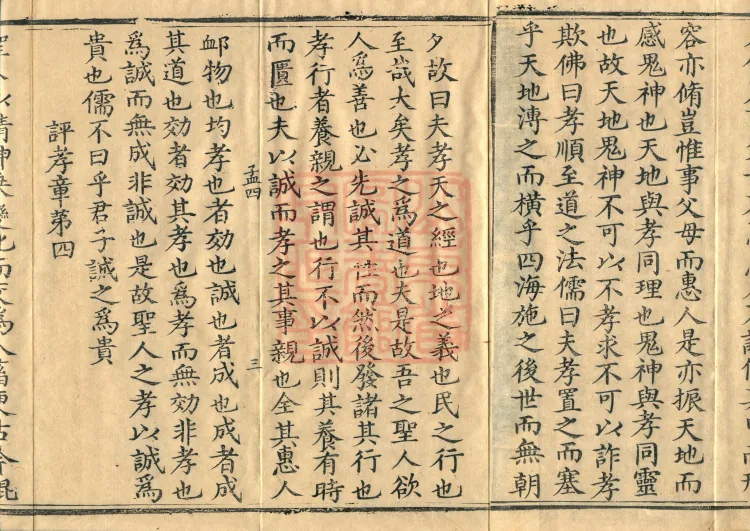 容亦脩豈惟事父母而惠人是亦振天地而
感鬼神也天地與孝同理也鬼神與孝同靈
也故天地鬼神不可以不孝求不可以詐孝
欺佛曰孝順至道之法儒曰夫孝置之而塞
乎天地溥之而橫乎四海施之後世而無朝
夕故曰夫孝天之經也地之義也民之行也
至哉大矣孝之爲道也夫是故吾之聖人欲
人爲善也必先誠其性而然後發諸其行也
孝行者養親之謂也行不以誠則其養有時
而匱也夫以誠而孝之其事親也全其惠人
孟四 三
卹物也均孝也者効也誠也者成也成者成
其道也効者効其孝也爲孝而無効非孝也
爲誠而無成非誠也是故聖人之孝以誠爲
貴也儒不曰乎君子誠之爲貴
評孝章第四